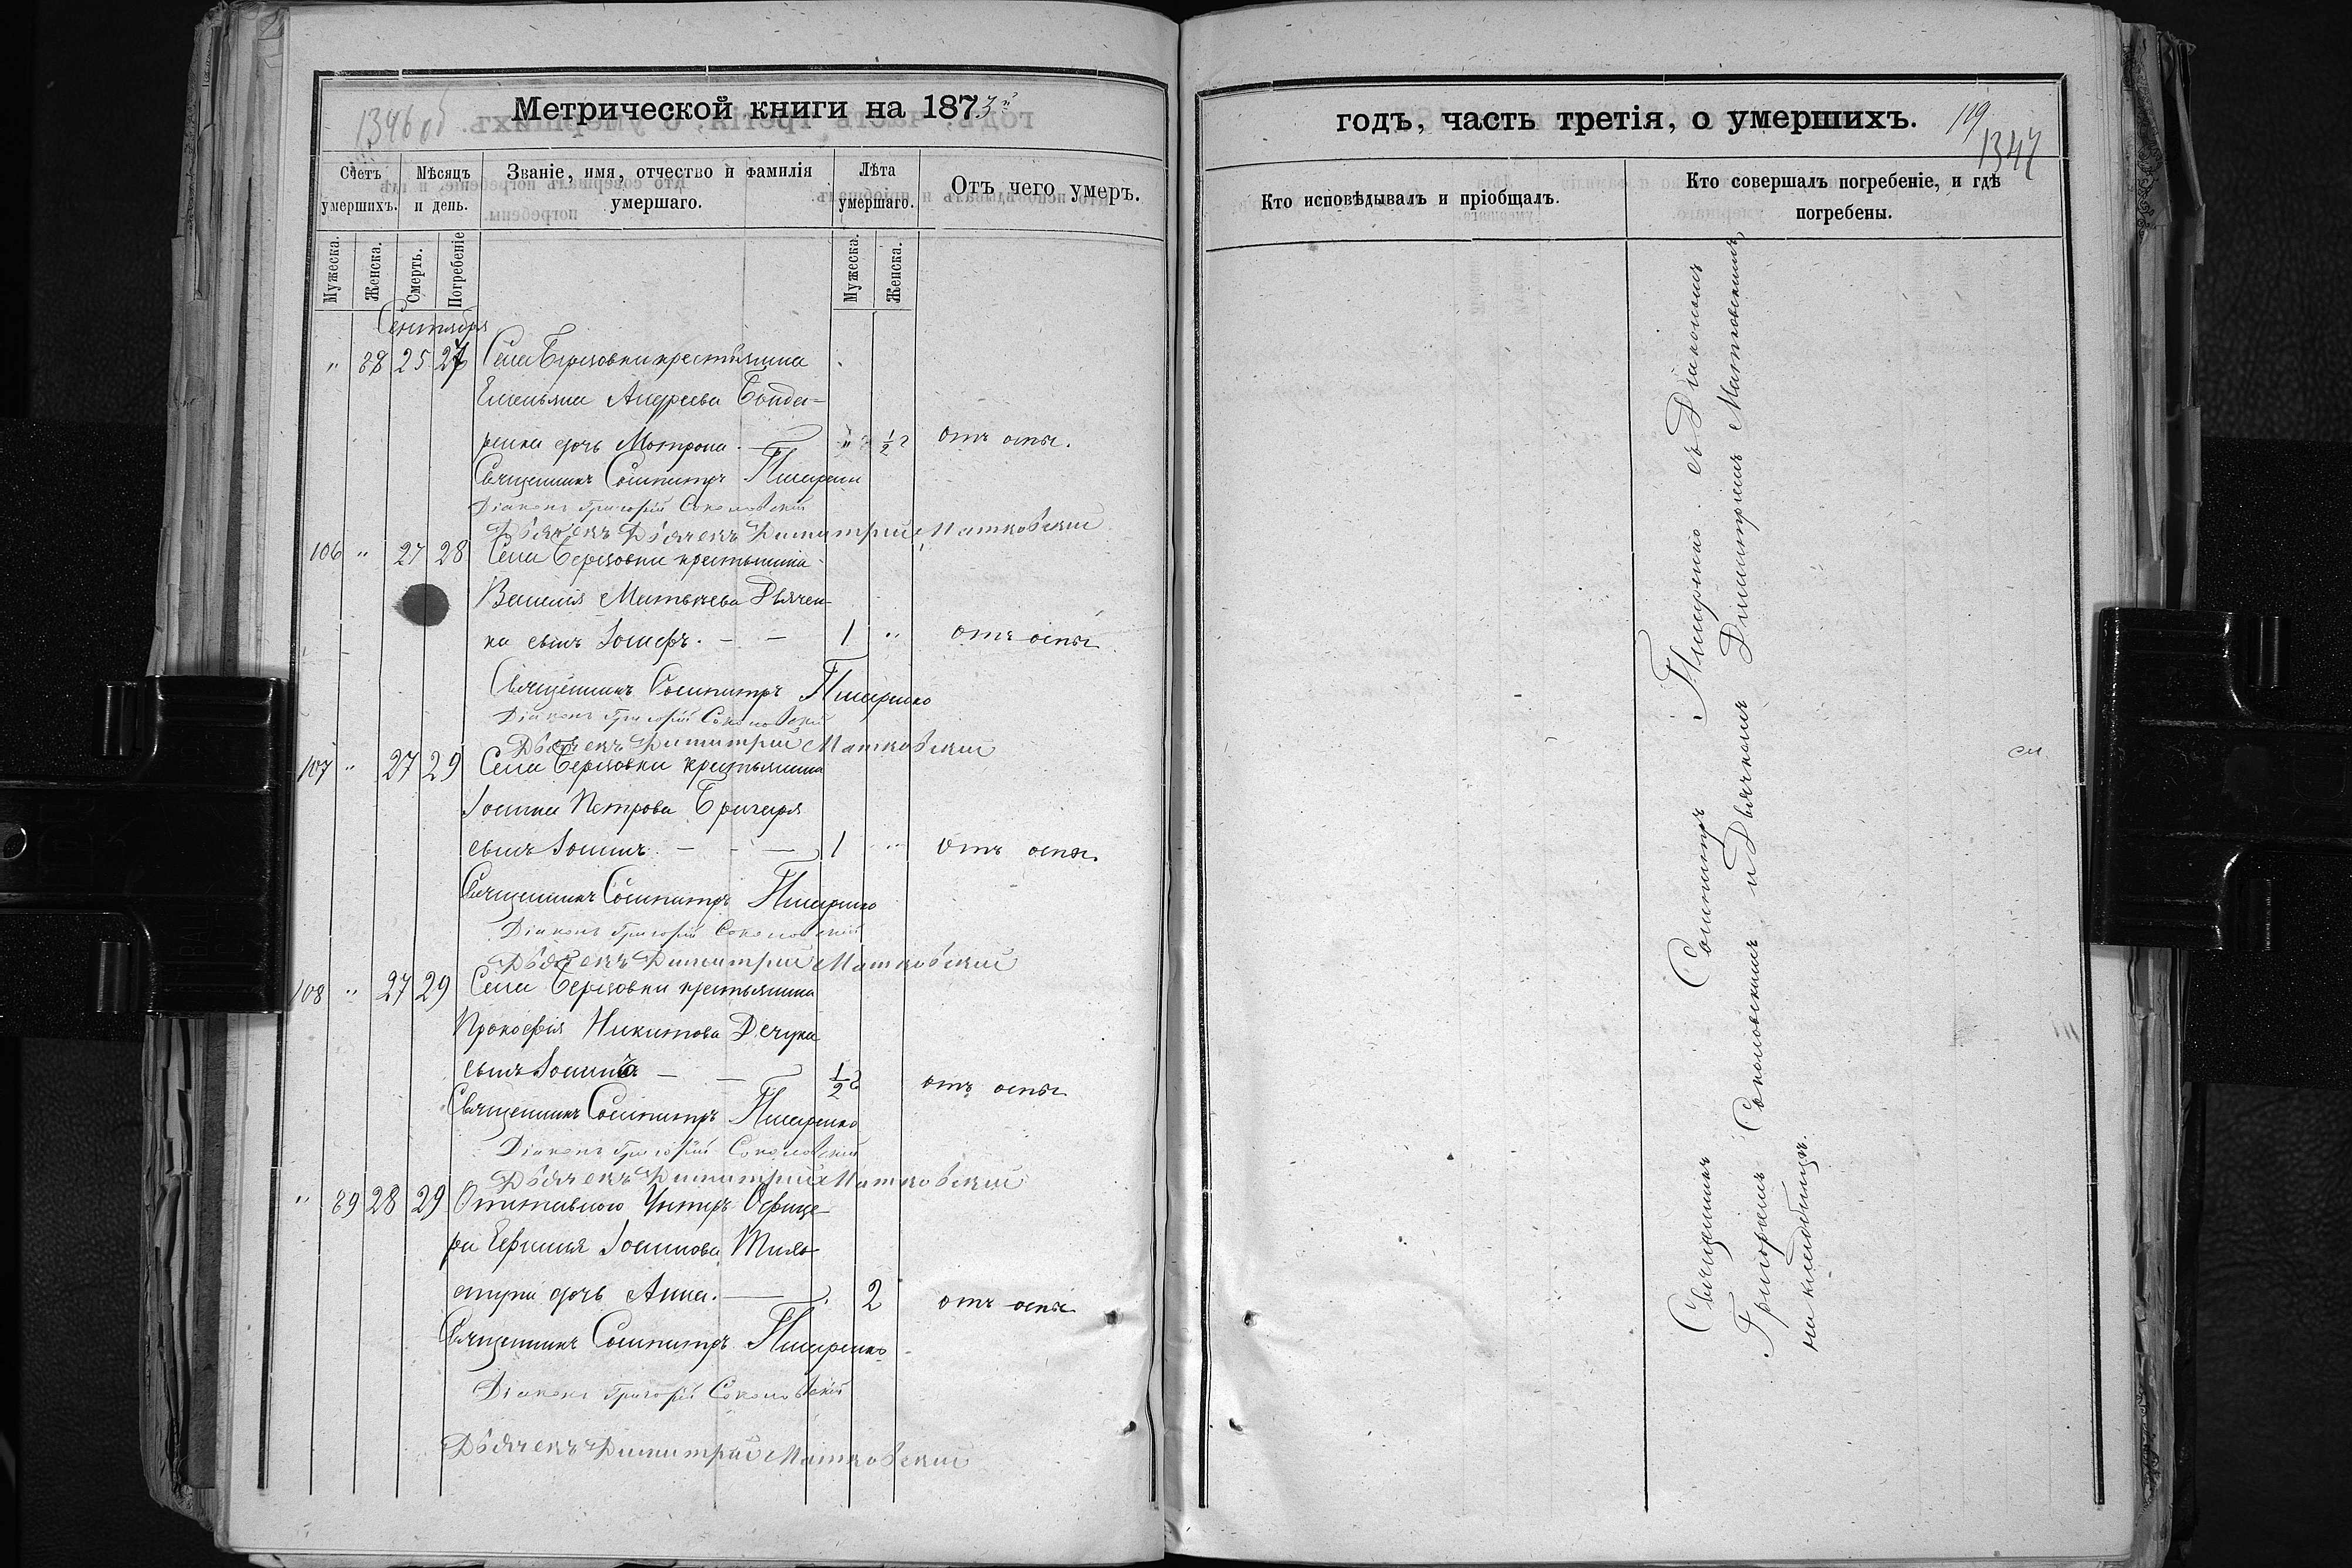 1346 об
Метрической книги на 1873й
Счетъ умершихъ.
Мѣсяцъ и день.
Званіе, имя, отчество и фамилія умершаго.
Лѣта умершаго.
Отъ чего умеръ.
Мужеска.
Женска.
Смерть.
Погребеніе
Мужеска.
Женска.
Сентября
" 88 25 27 Села Березовки крестьянина
Емельяна Андреева Бонда-
ренка дочь Матрона. — " ½ г отъ оспы.
Священникъ Сосипатръ Писаренко
Діаконъ Григорій Соколовскій
Дьячекъ Дьячекъ Димитрий Матковский
106 " 27 28 Села Березовки крестьянина
Василія Матвѣева Дьячен-
ка сынъ Іосифъ. — — 1 " отъ оспы
Священникъ Сосипатръ Писаренко
Діаконъ Григорій Соколовскій
Дьячекъ Димитрий Матковский
107 " 27 29 Села Березовки крестьянина
Іоанна Петрова Бричаря
сынъ Іоаннъ. — — — 1 " отъ оспы.
Священникъ Сосипатръ Писаренко
Діаконъ Григорій Соколовскій
Дьячекъ Димитрий Матковский
108 " 27 29 Села Березовки крестьянина
Прокофія Никитова Дечука
сынъ Іоаннъ — — ½ г отъ оспы
Священникъ Сосипатръ Писаренко
Діаконъ Григорій Соколовскій
Дьячекъ Димитрий Матковский
" 89 28 29 Отставного Унтеръ Офице-
ра Ефимия Іоаннова
дочь Анна. — 2 отъ оспы
Священникъ Сосипатръ Писаренко
Діаконъ Григорій Соколовскій
Дьячекъ Димитрий Матковский
годъ, часть третія, о умершихъ.
119
1347
Кто исповѣдывалъ и пріобщалъ.
Кто совершалъ погребеніе, и гдѣ
погребены.
Священникъ Сосипатръ Писаренко съ Діакономъ
Григоріемъ Соколовскимъ и Дьячкомъ Димитріемъ Матковскимъ,
на кладбищѣ.
см.